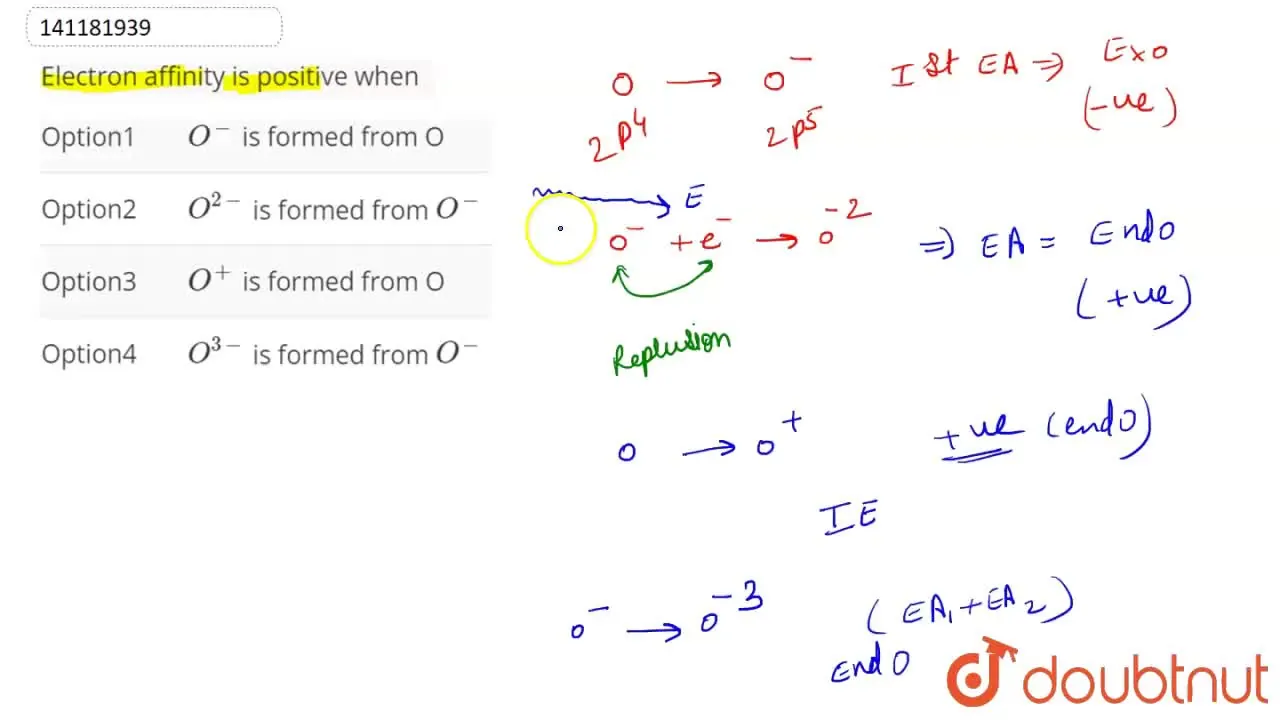 141181939
Electron affinity is positive when
Option1 O⁻ is formed from O
Option2 O²⁻ is formed from O⁻
Option3 O⁺ is formed from O
Option4 O³⁻ is formed from O⁻
O → O⁻ I st EA ⇒ Exo
2p⁴ 2p⁵ (-ve)
E
O⁻ + e⁻ → O⁻² ⇒ EA = Endo
(+ve)
Replusion
O → O⁺ +ve (endo)
IE
O⁻ → O⁻³ (EA₁+EA₂)
endo
doubtnut